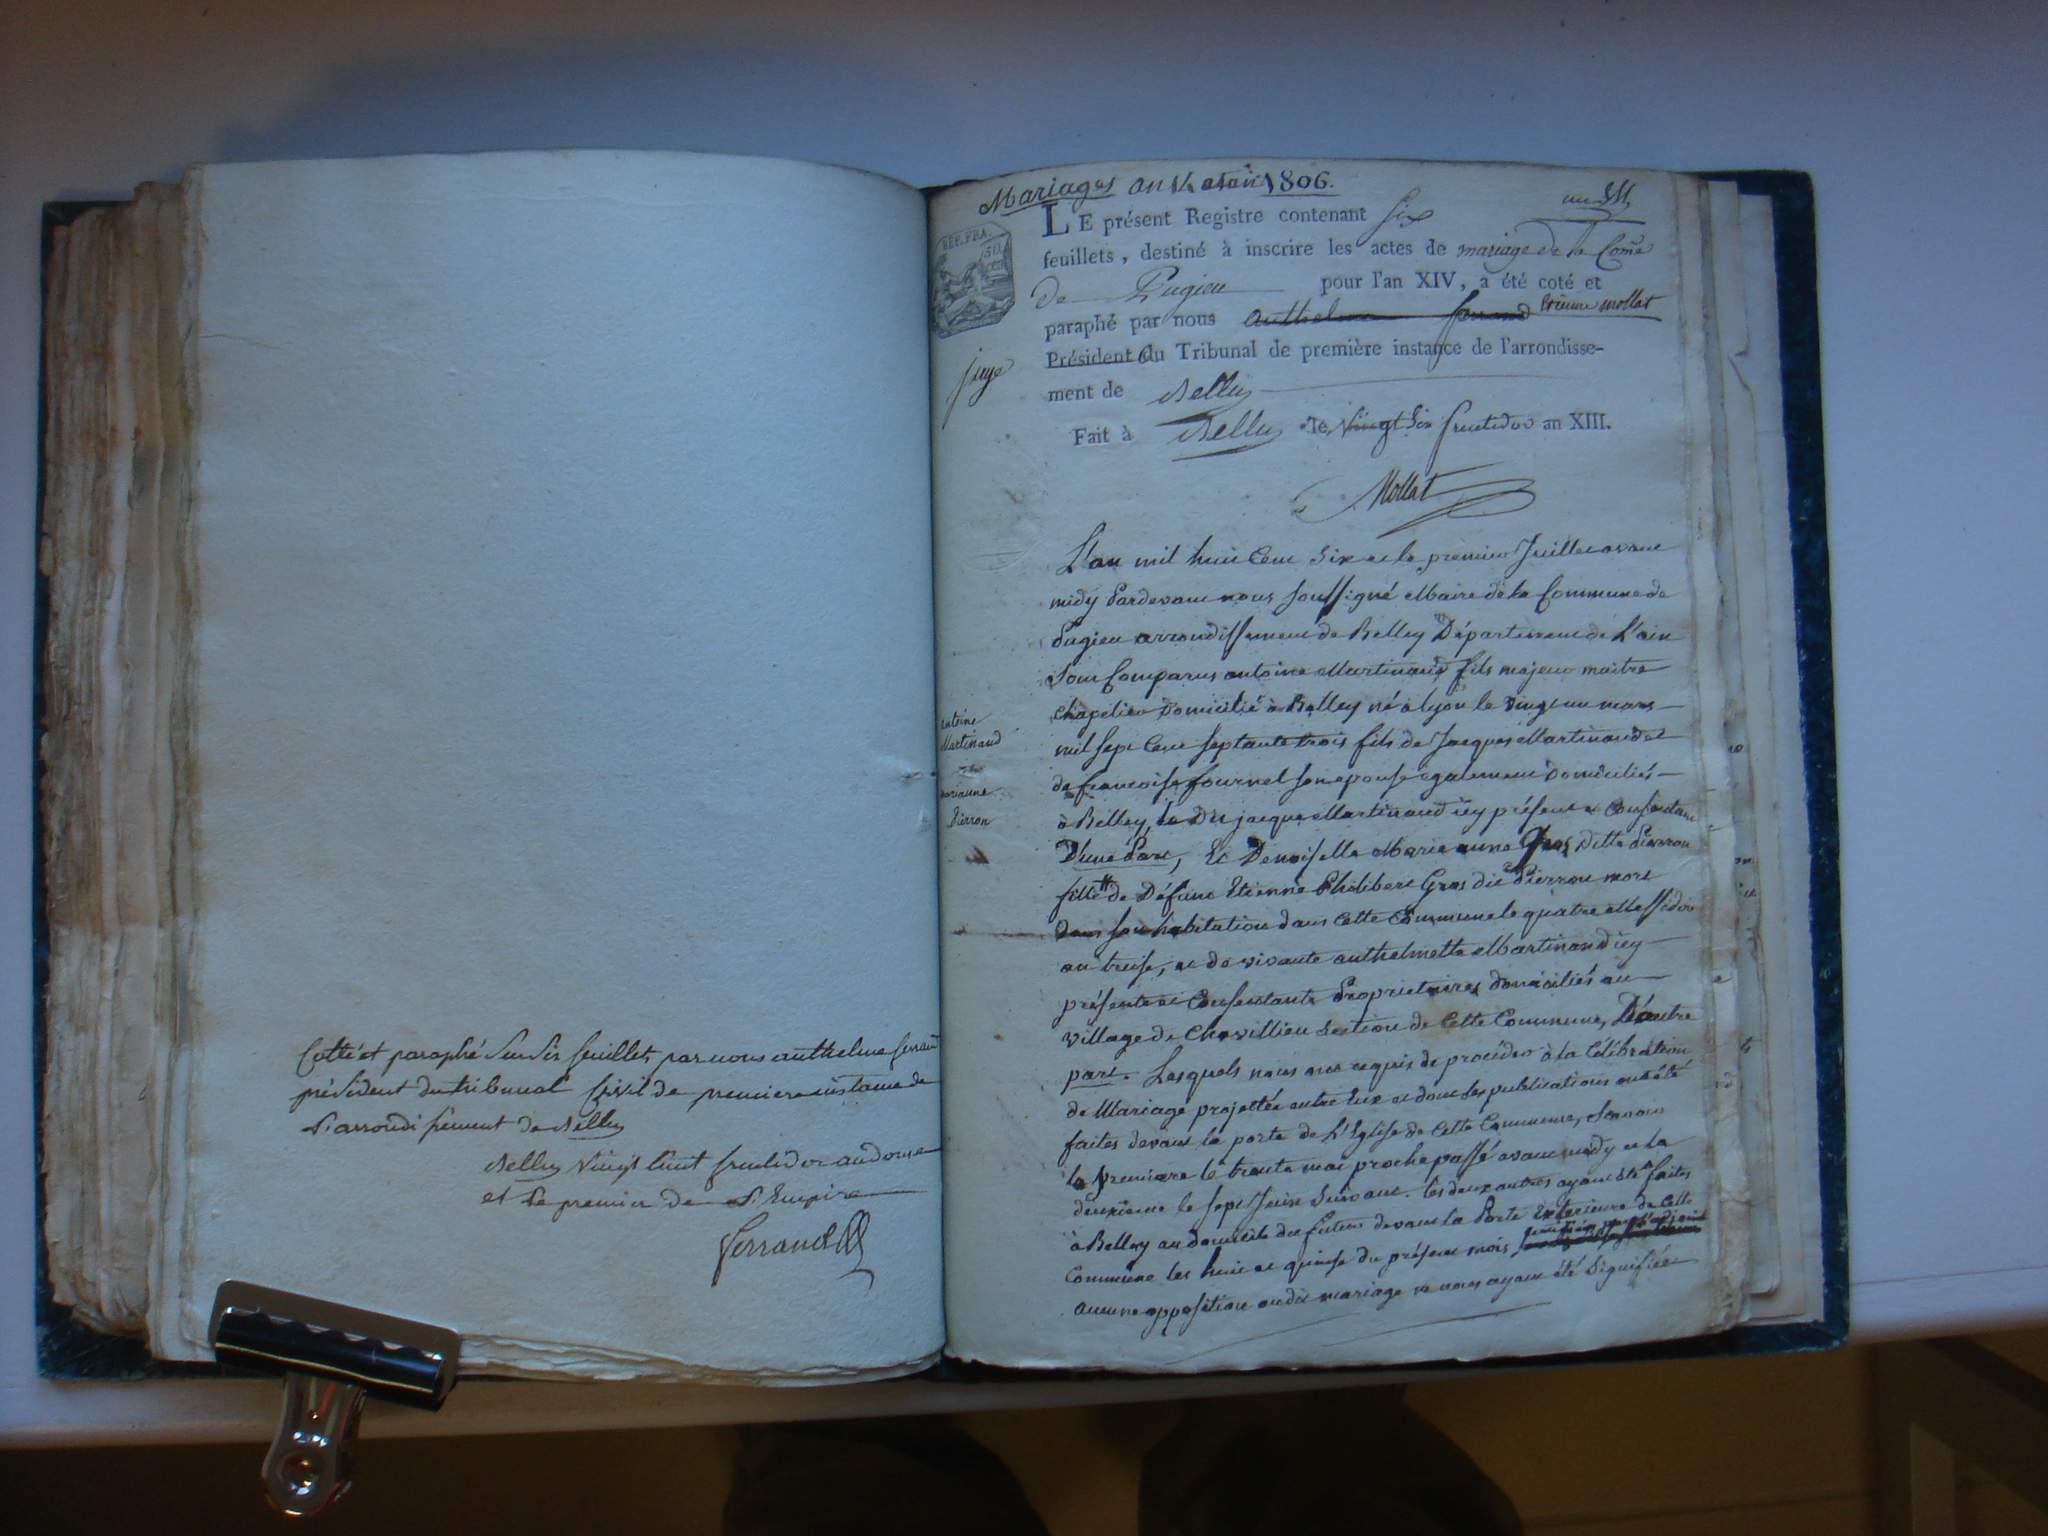 Cotté et paraphé Sur Six feuillets par nous anthelme ferrand
président du tribunal Civil de premiere instance de
L'arrondissement de Belley
Belley Vingt huit fructidor an douze
et Le premier de L'Empire
ferrand
Mariages an 14 et an 1806.
LE présent Registre contenant Six
feuillets, destiné à inscrire les actes de mariage de la Comẽ
de Pugieu pour l'an XIV, a été coté et
paraphé par nous anthelme ferrand Etienne Mollat
Président du Tribunal de première instance de l'arrondisse-
juge
ment de Belley
Fait à Belley le Vingt Six fructidor an XIII.
Mollat
REP. FRA.
50
L'an mil huit Cent Six et le premier Juillet avant
midy Pardevant nous soussigné Maire de la Commune de
Pugieu arrondissement de Belley Département de L'ain
Sont Comparus antoine Martinand fils majeur maitre
chapelier domicilié à Belley né à lyon le vingt un mars
mil sept Cent septante trois fils de Jacques Martinand et
de francoise fournel son epouse egalement domiciliés
à Belley, le Dit jacque Martinand icy présent et Consentant
D'une Part, Et Demoiselle Marie anne Gros Ditte Pierron
fille de Défunt Etienne Philibert Gros dit Pierron mort
dans son habitation dans Cette Commune le quatre Messidor
an treise, et de vivante anthelmette Martinand icy
présente et Consentante Proprietaires domiciliés au
village de Chavillieu Section de Cette Commune, D'autre
part. Lesquels nous ont requis de procéder à la Célébration
de Mariage projettée entre Eux et dont les publications ont été
faites devant la porte de L'Eglise de Cette Commune, Scavoir
la premiere le trente mai proche passé avant midy et la
deuxieme le sept Juin Suivant. les deux autres ayant été faites
à Belley au domicile du futur devant la Porte Exterieure de Cette
Commune les huit et quinse du présent mois
aucune opposition audit mariage ne nous ayant été Signifiée
antoine
Martinand
marianne
Pierron